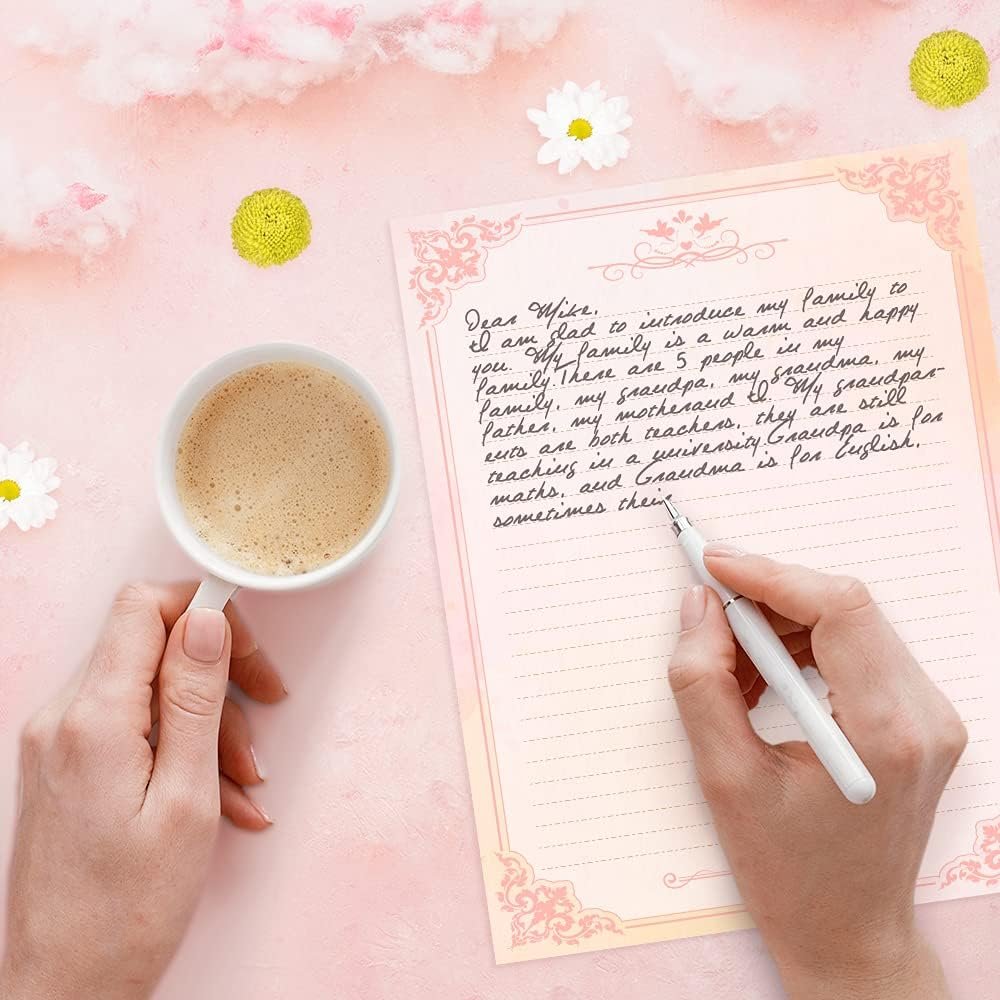 Dear Mike,
I am glad to introduce my family to
you. My family is a warm and happy
family.There are 5 people in my
family, my grandpa, my grandma, my
father, my motherand I. My grandpar-
ents are both teachers, they are still
teaching in a university.Grandpa is for
maths, and Grandma is for English,
sometimes thei